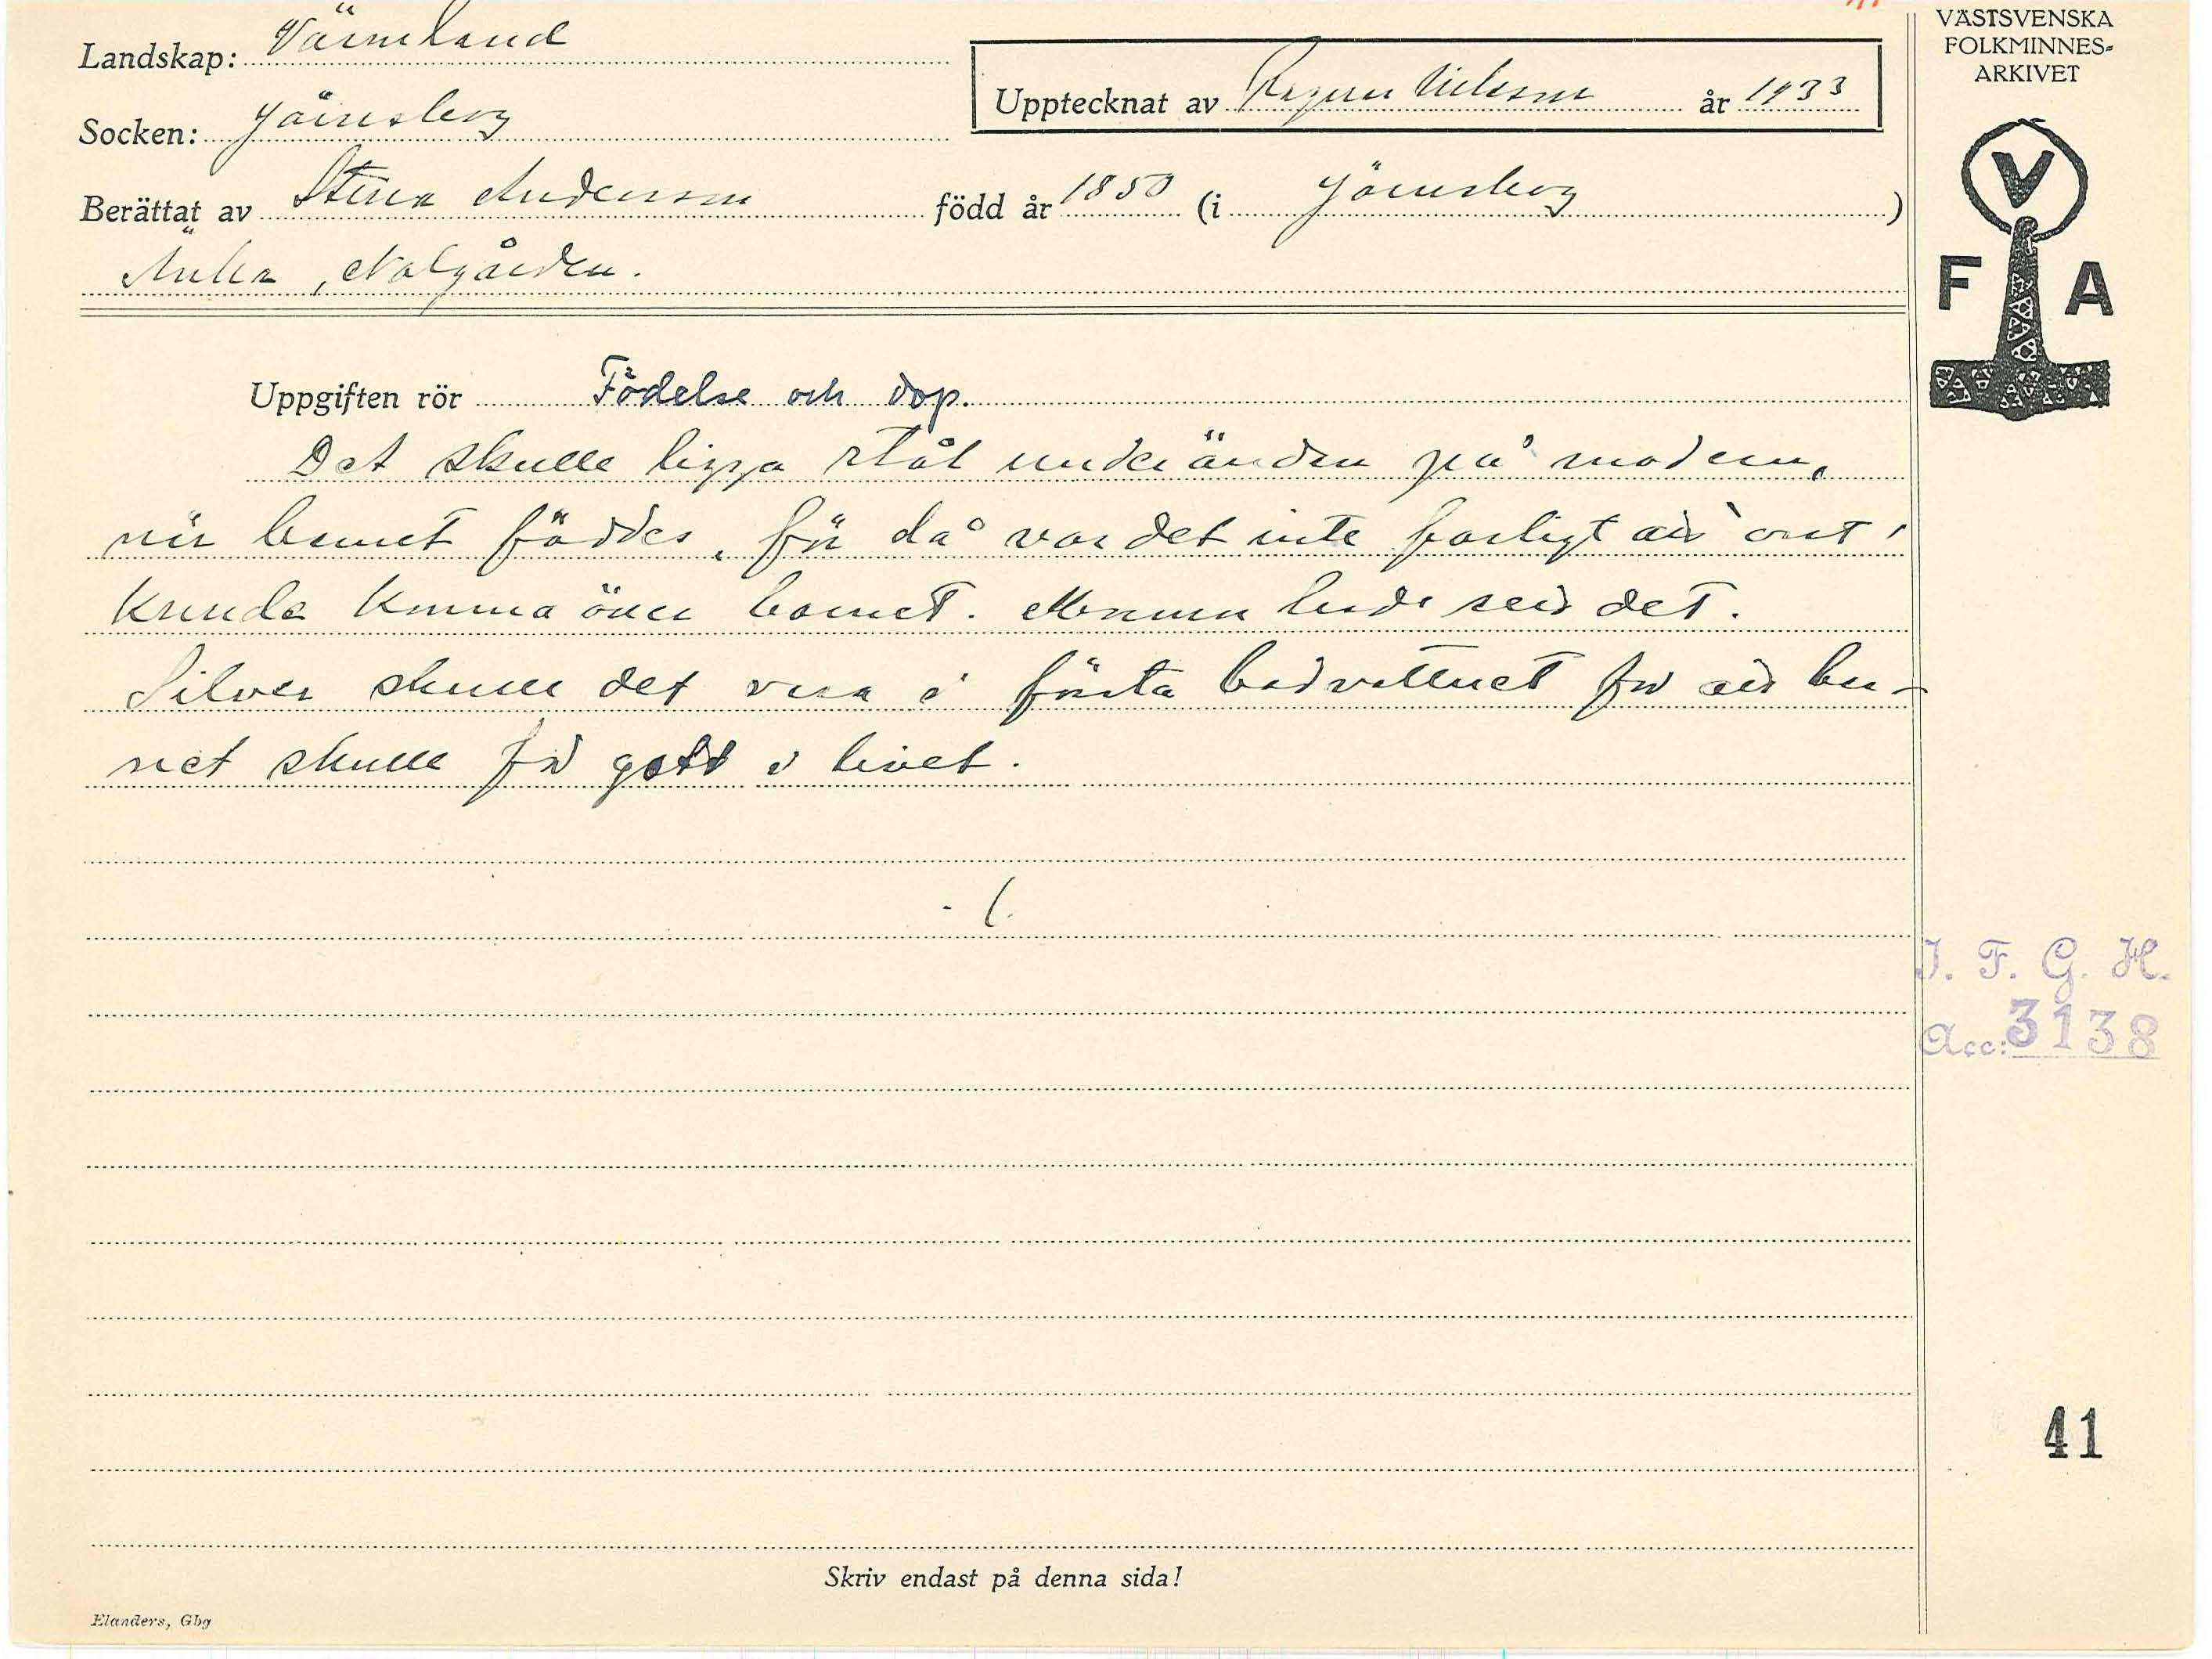 Landskap: Värmland
Socken: Järnsberg
Upptecknat av Ragnar Nilsson år 1933
Berättat av Stina Andersson född år 1850 (i Järnsberg)
Änka, Nolgården.
VÄSTSVENSKA
FOLKMINNES=
ARKIVET
V
F A
Uppgiften rör Födelse och dop.
Det skulle ligga stål under änden på modern,
när barnet föddes, för då var det inte farligt att ont
kunde komma över barnet. Mormor hade sett det.
Silver skulle det vara i första badvattnet för att bar-
net skulle få gott i livet.
I. F. G. H.
Acc: 3138
41
Skriv endast på denna sida!
Elanders, Gbg